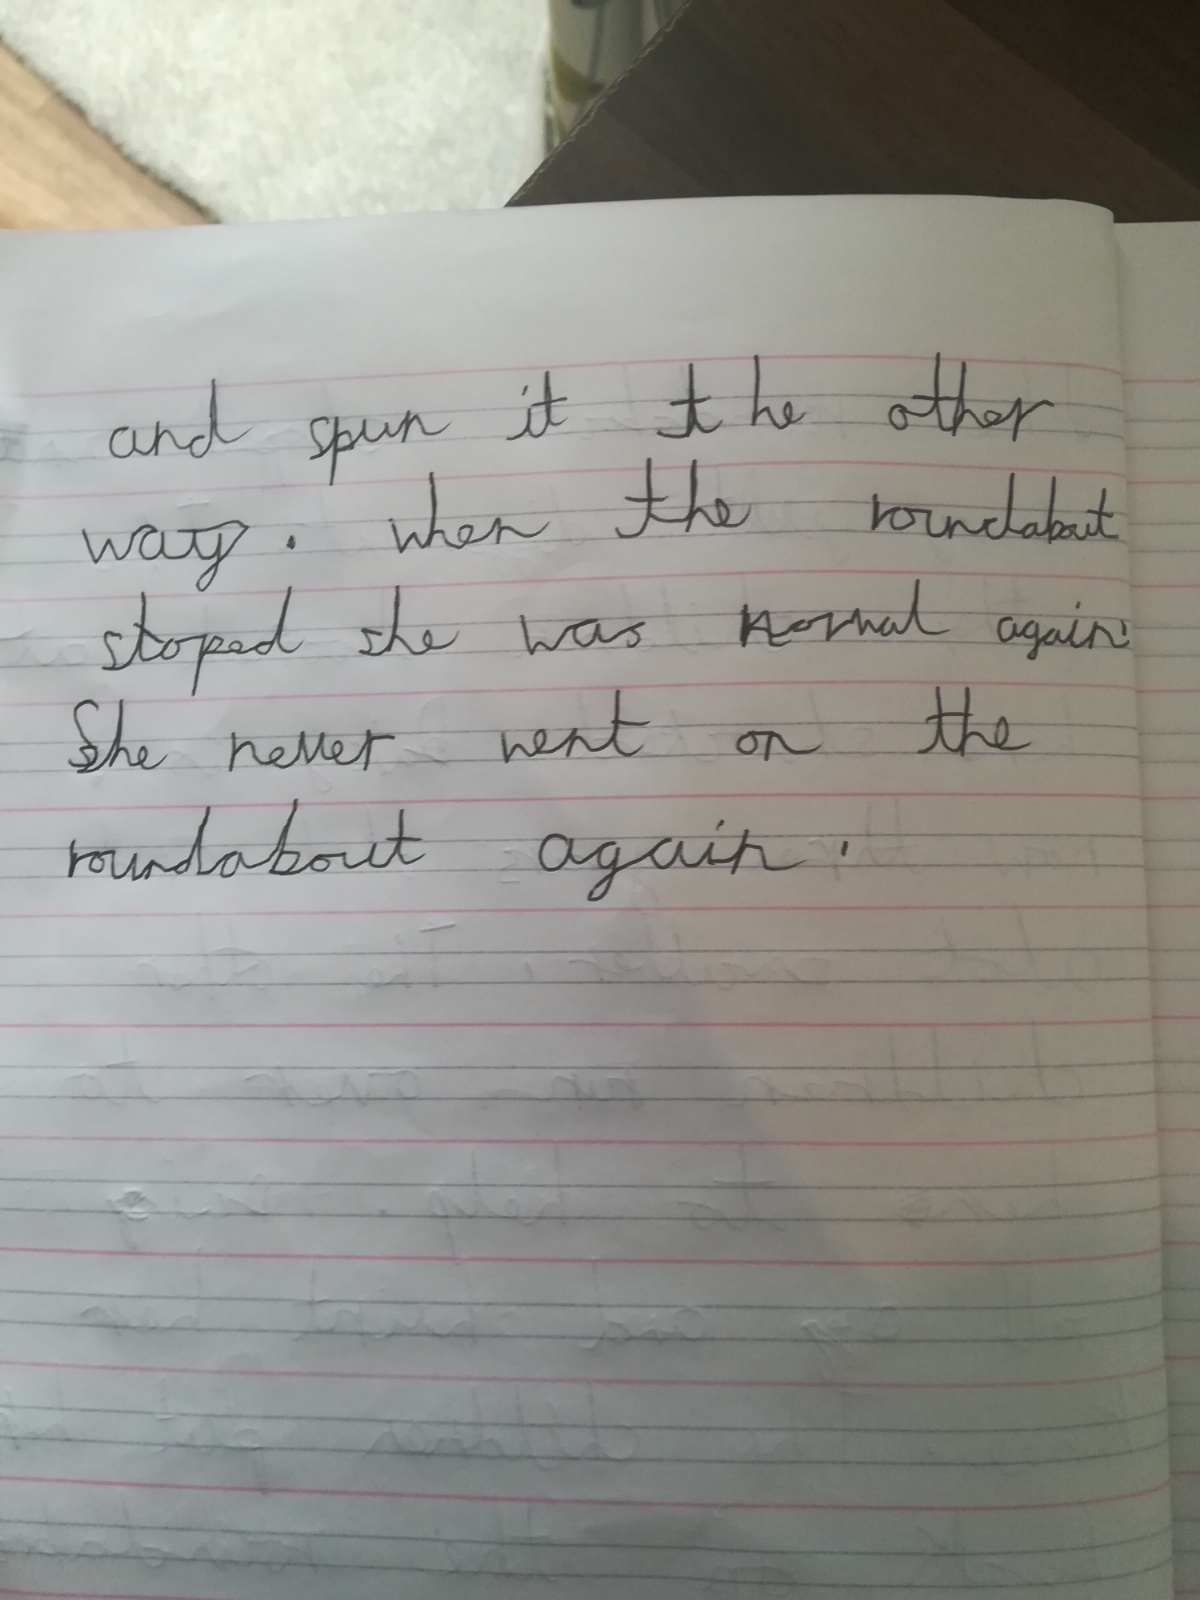 and spun it the other
way. when the roundabout
stoped she was normal again.
She never went on the
roundabout again.